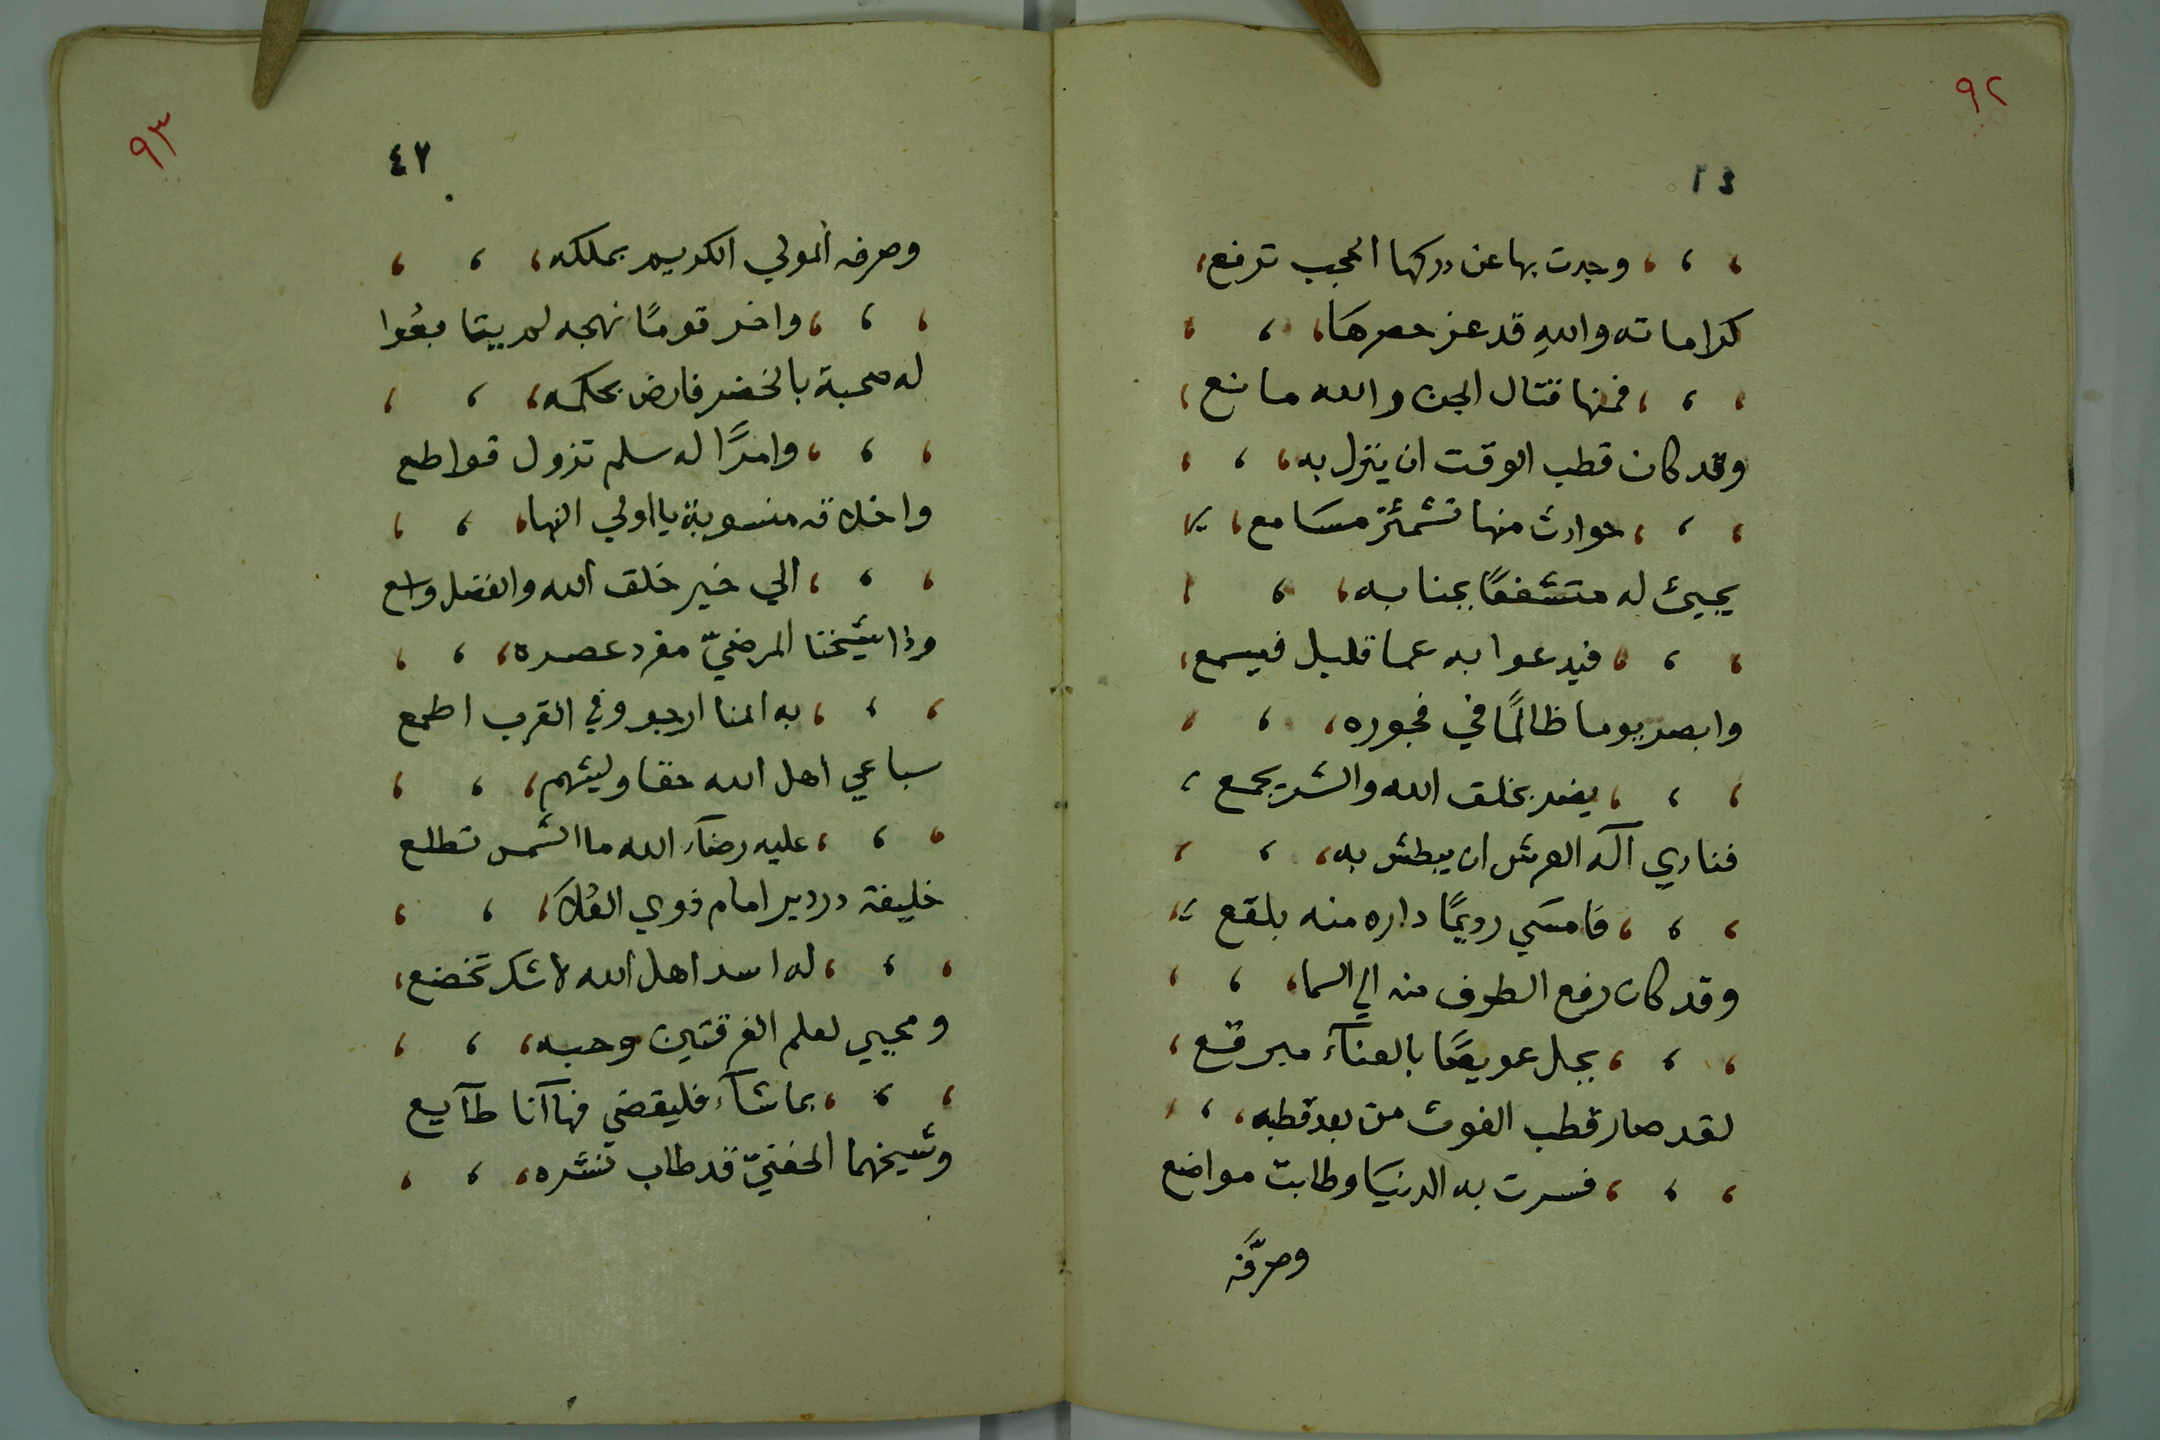 ٩٢
٤٦
وجدت بها عن دركها الحجب ترفع
كراماته والله قد عز حصرها
فمنها قتال الجن والله مانع
وقد كان قطب الوقت ان ينزل به
حوادث منها تشمئز مسامع
يجيئ له متشفعًا بجنابه
فيدعوا به عما قليل فيسمع
وابصر يوما ظالمًا في فجوره
يضر بخلق الله والشر يجمع
فنادي آله العرش ان يبطش به
فامسي رويمًا داره منه بلقع
وقد كان رفع الطرف منه الي السما
يحل عويصًا بالعنآء مبرقع
لقد صار قطب الغوث من بعد قطبه
فسرت به الدنيا وطابت مواضع
وصرَّفه
٩٣
٤٧
وصرفه المولي الكريم بملكه
واخر قومًا نهجه لم يتابعُوا
له صحبة بالخضر فارض بحكمه
وامرًا له سلم تزول قواطع
واخلاقه منسوبة يا اولي النها
الي خير خلق الله والفضل واسع
وذا شيخنا المرضيّ مفرد عصره
به المنا ارجو وفي القرب اطمع
سباعي اهل الله حقا وليثهم
عليه رضآء الله ما الشمس تطلع
خليفة دردير امام ذوي العُلا
له اسد اهل الله لا شك تخضع
ومحيي لعلم الفرقتين وحبه
بما شآء فليقضي فها آنا طآيع
وشيخهما الحفنيّ قد طاب نشره